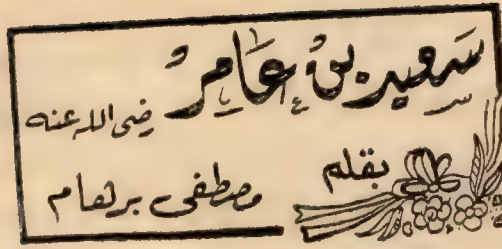 سَعيد بنُ عَامِرُ
رضى الله عنه
بقلم
مصطفى برهام